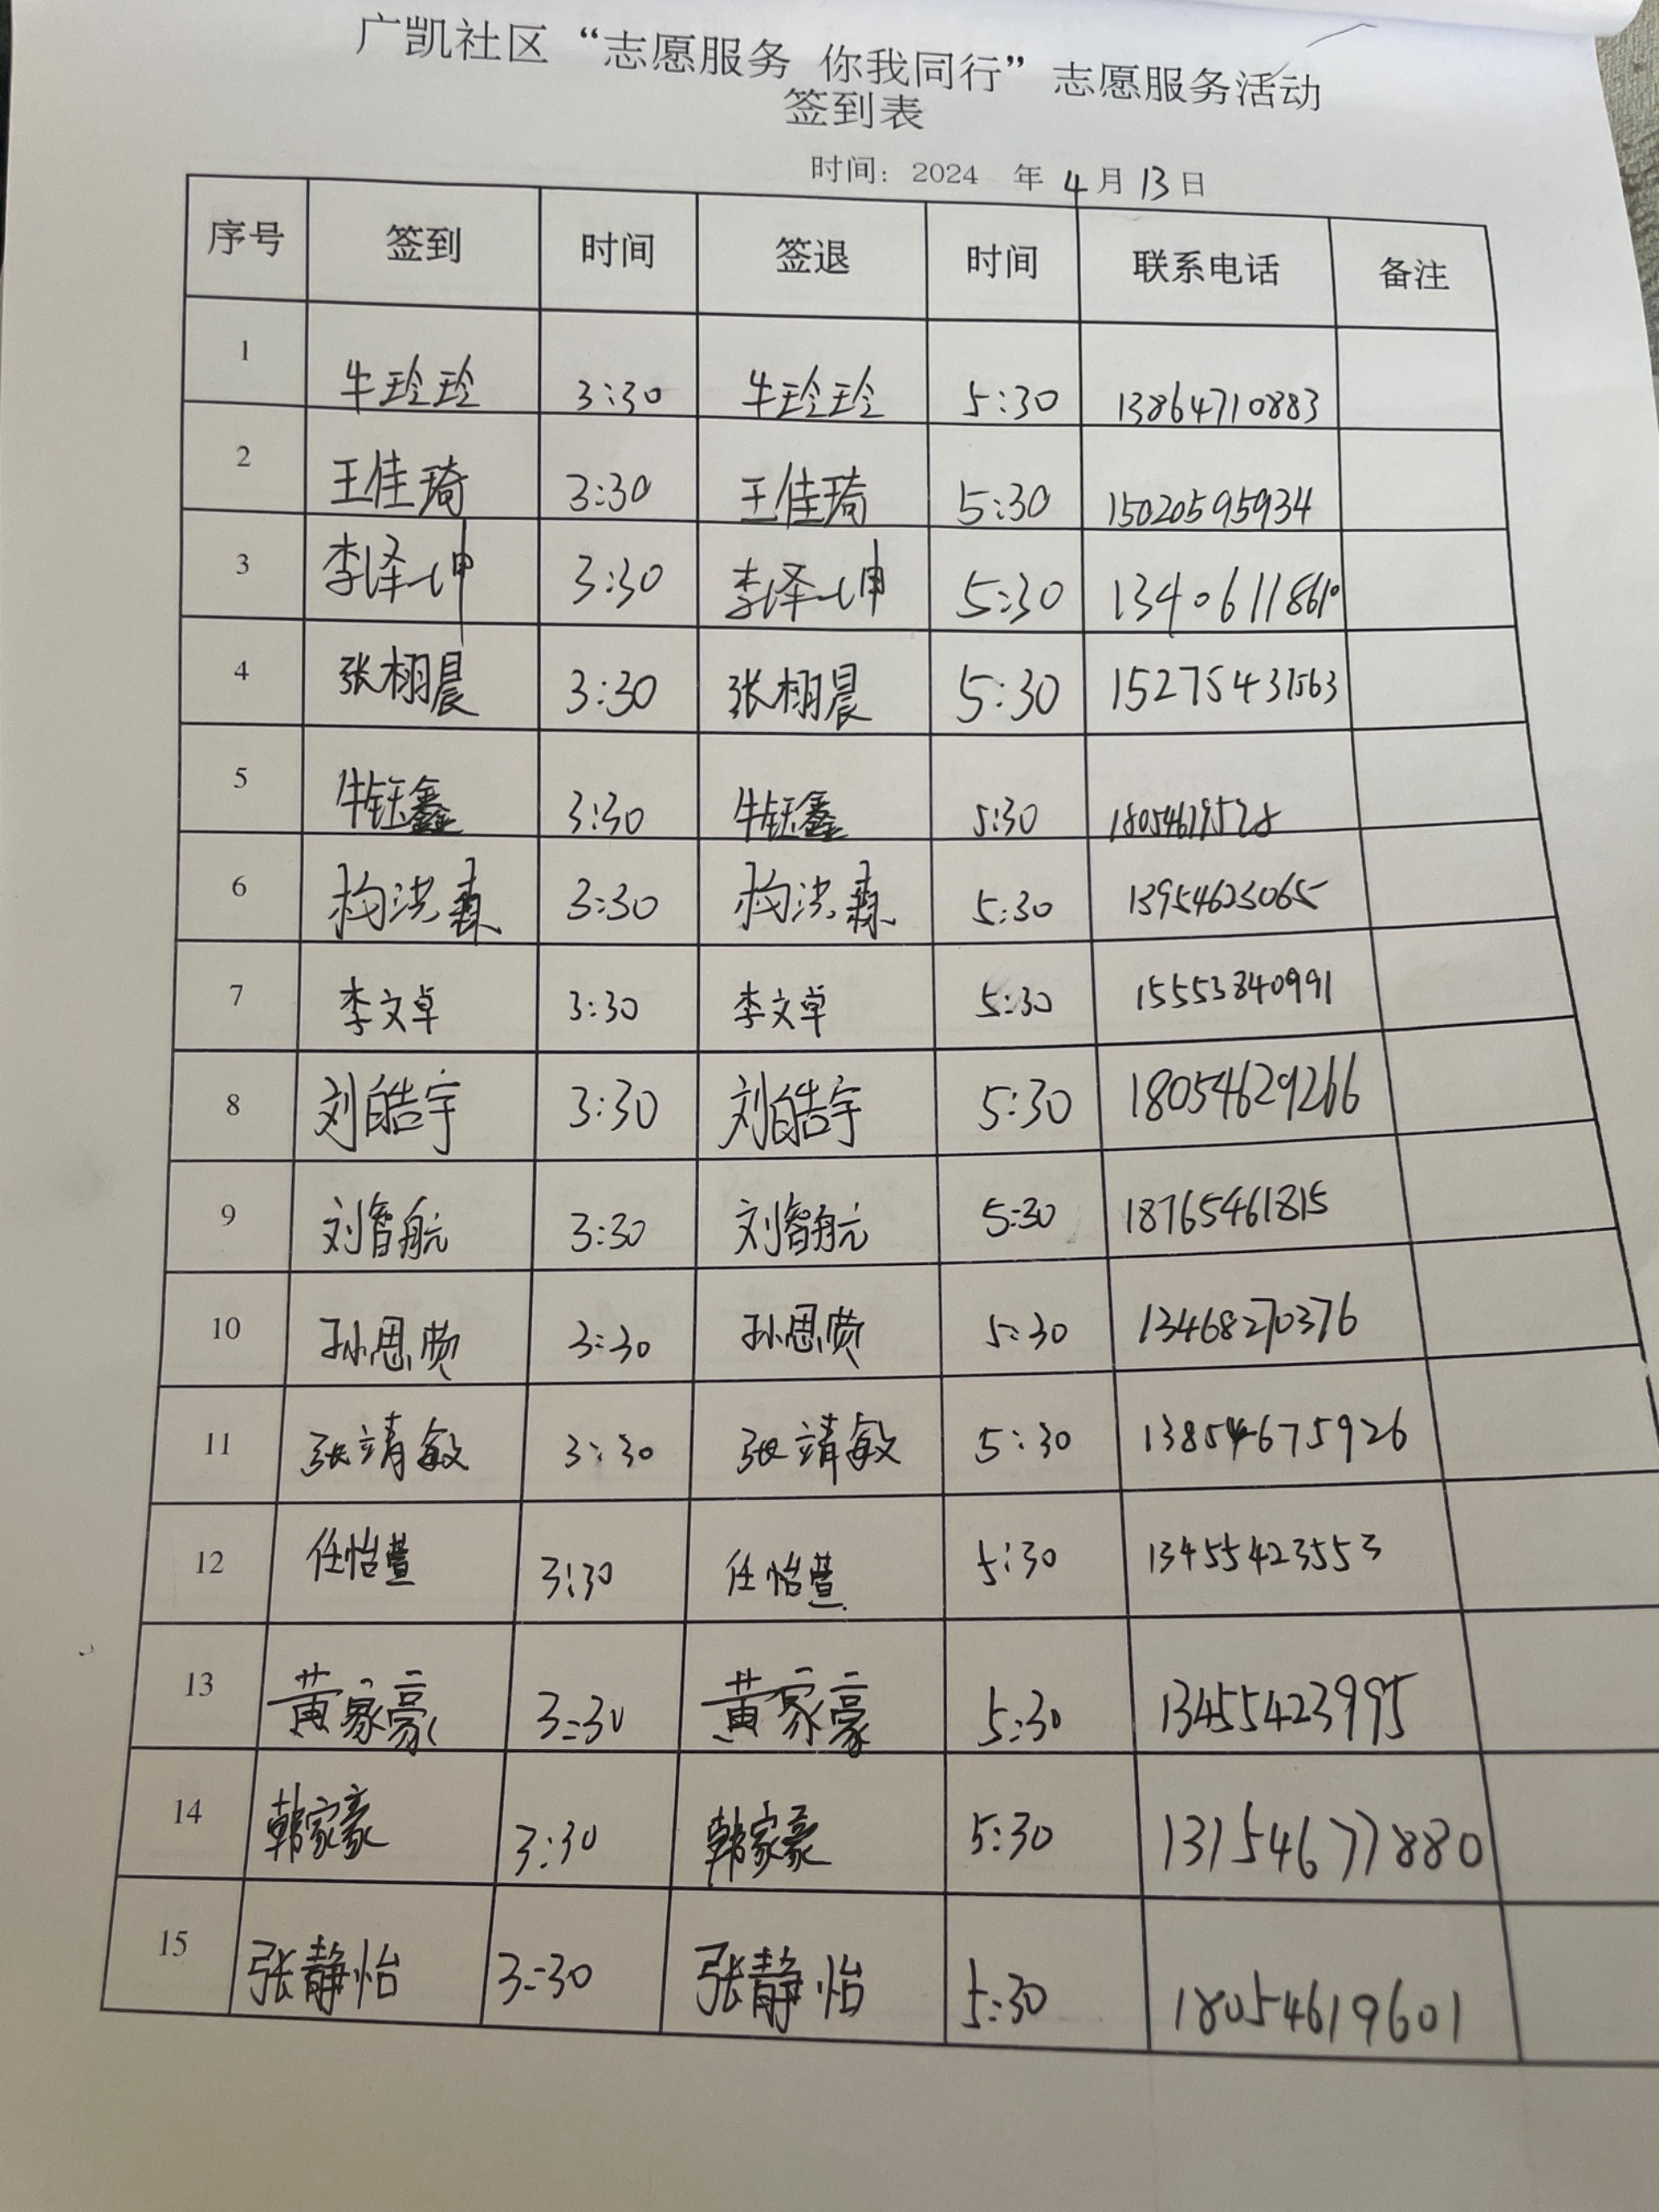 广凯社区“志愿服务 你我同行”志愿服务活动
签到表
时间：2024 年 4 月 13 日
序号 签到 时间 签退 时间 联系电话 备注
1 牛玲玲 3:30 牛玲玲 5:30 13864710883
2 王佳琦 3:30 王佳琦 5:30 15020595934
3 李泽坤 3:30 李泽坤 5:30 13406118610
4 张栩晨 3:30 张栩晨 5:30 15275431563
5 牛钰鑫 3:30 牛钰鑫 5:30 18054619528
6 洪森 3:30 洪森 5:30 13954623065
7 李文卓 3:30 李文卓 5:30 15553840991
8 刘皓宇 3:30 刘皓宇 5:30 18054629266
9 刘智航 3:30 刘智航 5:30 18765461815
10 孙思赟 3:30 孙思赟 5:30 13468270376
11 张靖敏 3:30 张靖敏 5:30 13854675926
12 任怡萱 3:30 任怡萱 5:30 13455423553
13 黄家豪 3:30 黄家豪 5:30 13455423995
14 韩家豪 3:30 韩家豪 5:30 13154677880
15 张静怡 3:30 张静怡 5:30 18054619601